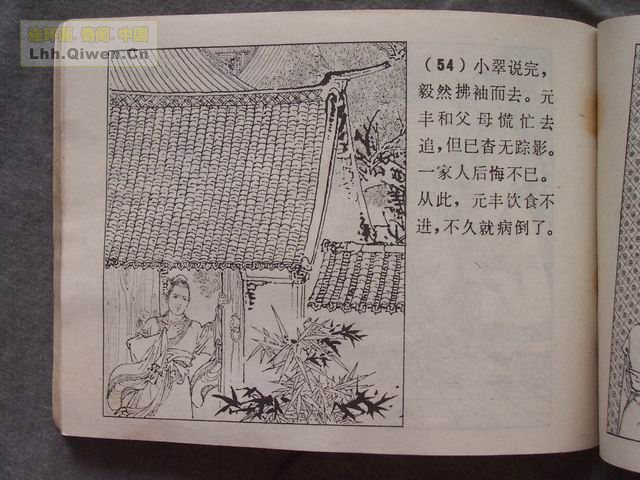 连环画.奇闻.中国
Lhh.Qiwen.Cn
（54）小翠说完，
毅然拂袖而去。元
丰和父母慌忙去
追，但已杳无踪影。
一家人后悔不已。
从此，元丰饮食不
进，不久就病倒了。